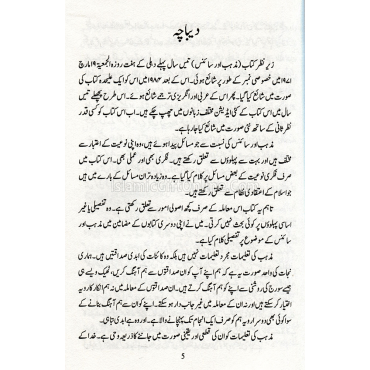 دیباچہ
زیر نظر کتاب (مذہب اور سائنس) تیس سال پہلے دہلی کے ہفت روزہ الجمعیۃ ۱۹ مارچ
۱۹۷۱ میں خصوصی نمبر کے طور پر شائع ہوئی۔ اس کے بعد ۱۹۸۴ میں اس کو ایک علیحدہ کتاب کی
صورت میں شائع کیا گیا۔ پھر اس کے عربی اور انگریزی ترجمے شائع ہوئے۔ اس طرح پچھلے تیس
سال میں اس کے کئی ایڈیشن مختلف زبانوں میں چھپ چکے ہیں۔ اب اس کتاب کو کسی قدر
نظر ثانی کے ساتھ نئی صورت میں شائع کیا جا رہا ہے۔
مذہب اور سائنس کی نسبت سے جو مسائل پیدا ہوئے ہیں، وہ اپنی نوعیت کے اعتبار سے
مختلف ہیں اور بہت سے پہلوؤں سے تعلق رکھتے ہیں۔ فکری بھی اور عملی بھی۔ اس کتاب میں
صرف فکری نوعیت کے بعض مسائل پر کلام کیا گیا ہے۔ وہ زیادہ تر ان مسائل کے بارے میں ہیں
جو اسلام کے اعتقادی نظام سے تعلق رکھتے ہیں۔
تاہم یہ کتاب اس معاملہ کے صرف کچھ اصولی امور سے تعلق رکھتی ہے۔ وہ تفصیلی یا غیر
اساسی پہلوؤں پر کوئی بحث نہیں کرتی۔ میں نے اپنی دوسری کتابوں کے مضامین میں مذہب اور
سائنس کے موضوع پر تفصیلی کلام کیا ہے۔
مذہب کی تعلیمات مجرد تعلیمات نہیں ہیں، بلکہ وہ کائنات کی ابدی صداقتیں ہیں۔ ہماری
نجات کی واحد صورت یہ ہے کہ ہم اپنے آپ کو ان صداقتوں سے ہم آہنگ کریں، ٹھیک ویسے ہی
جیسے سورج کی روشنی سے اپنے کو ہم آہنگ کرتے ہیں۔ ان صداقتوں کے معاملہ میں نہ ہم انکار کا رویہ
اختیار کر سکتے ہیں اور نہ ان کے معاملہ میں غیر جانب دار ہو سکتے۔ اپنے کو ان سے ہم آہنگ بنانے کے
سوا کوئی بھی دوسرا رویہ ہم کو صرف ایک انجام تک پہنچانے والا ہے۔ اور وہ ہے ابدی تباہی۔
مذہب کی تعلیمات کو ان کی قطعی اور یقینی صورت میں جاننے کا ذریعہ وحی ہے۔ خدا کے
5